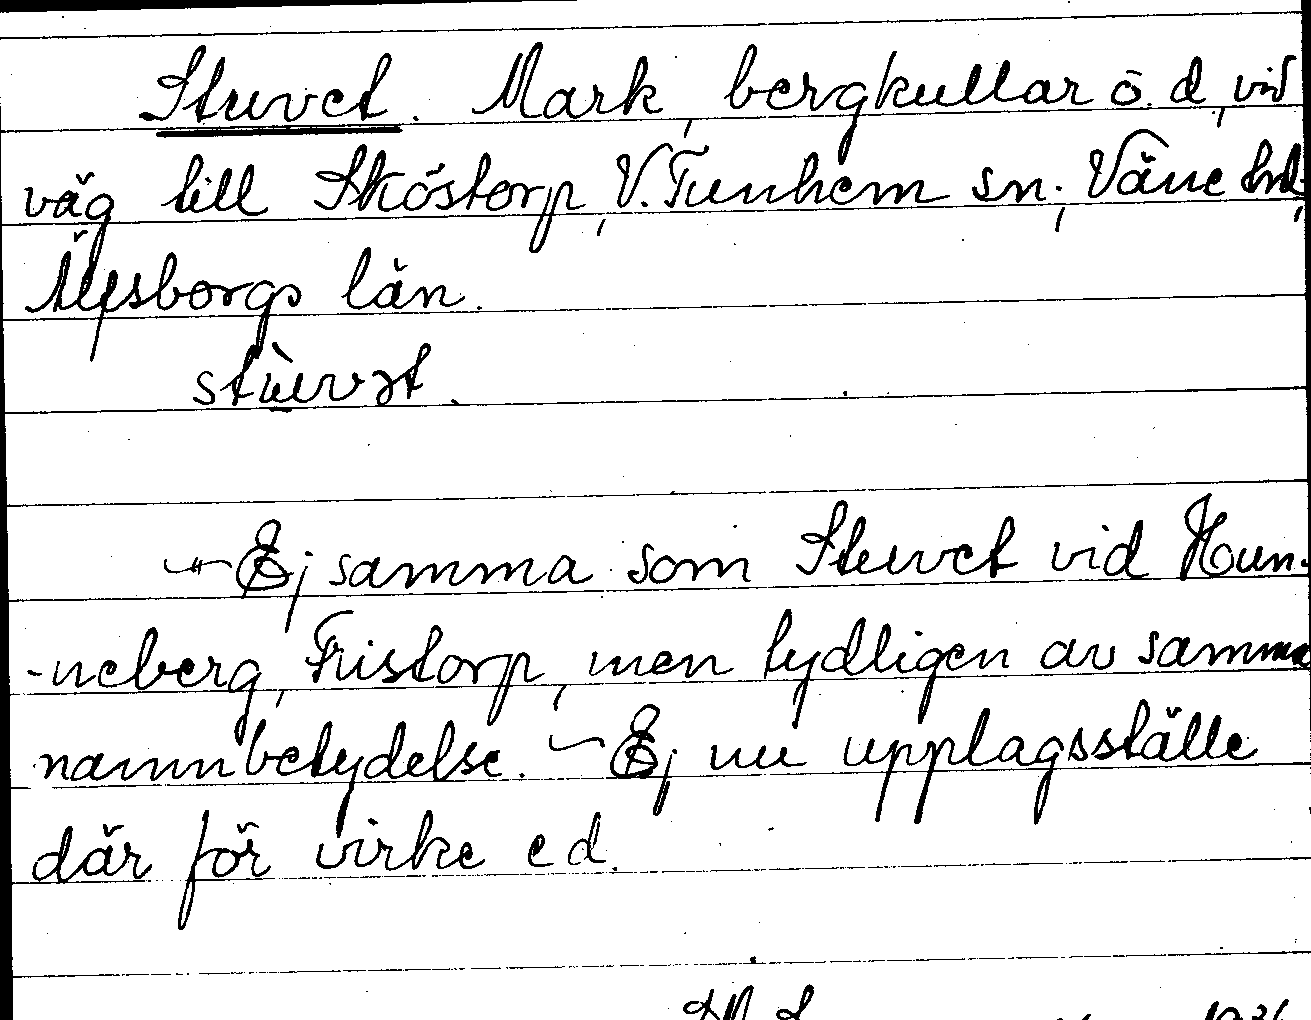 Stuvet. Mark, bergkullar o. d., vid
väg till Sköstorp, V. Tunhem sn; Väne hd;
Älfsborgs län.
stùvət.
— Ej samma som Stuvet vid Hun-
-neberg, Fristorp, men tydligen av samma
namnbetydelse. — Ej nu upplagsställe
där för virke e d.